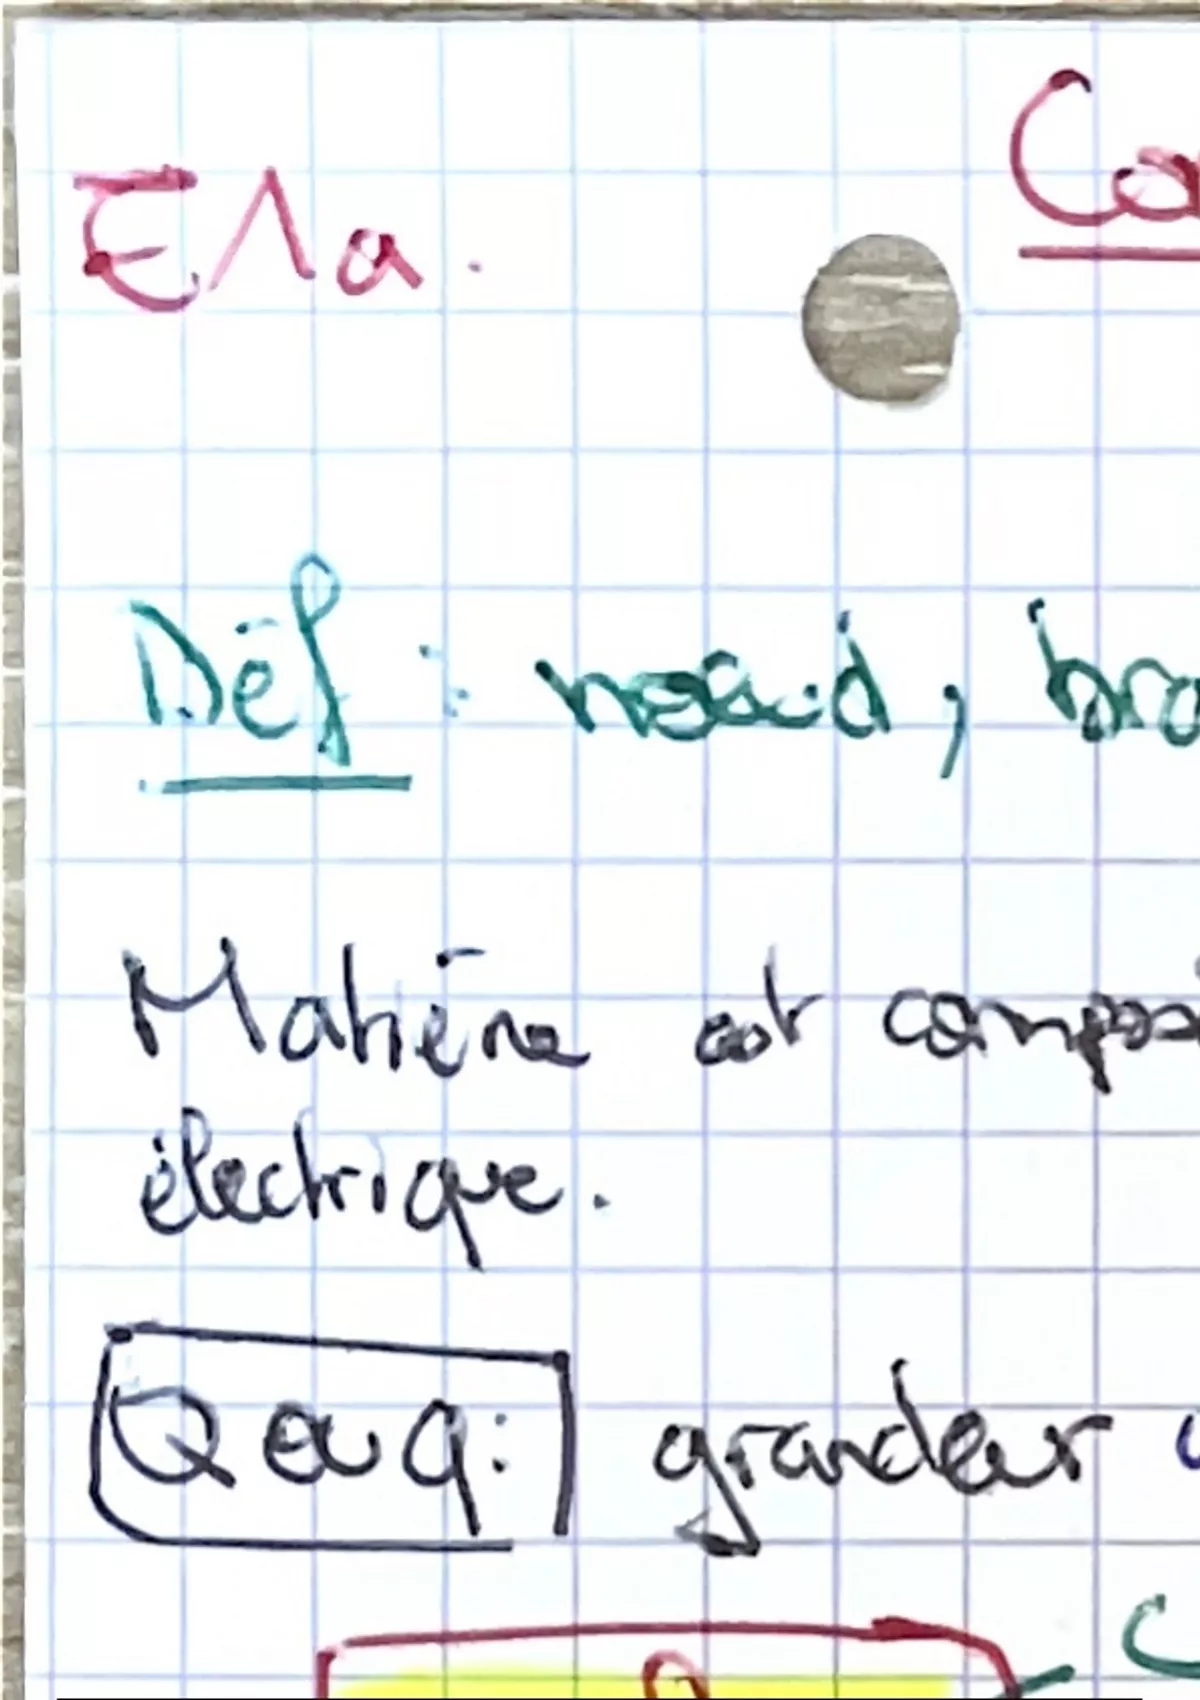 E1a. Co
Déf : nœud, bra
Matière est compos
électrique.
Q ou q: grandeur
Q C